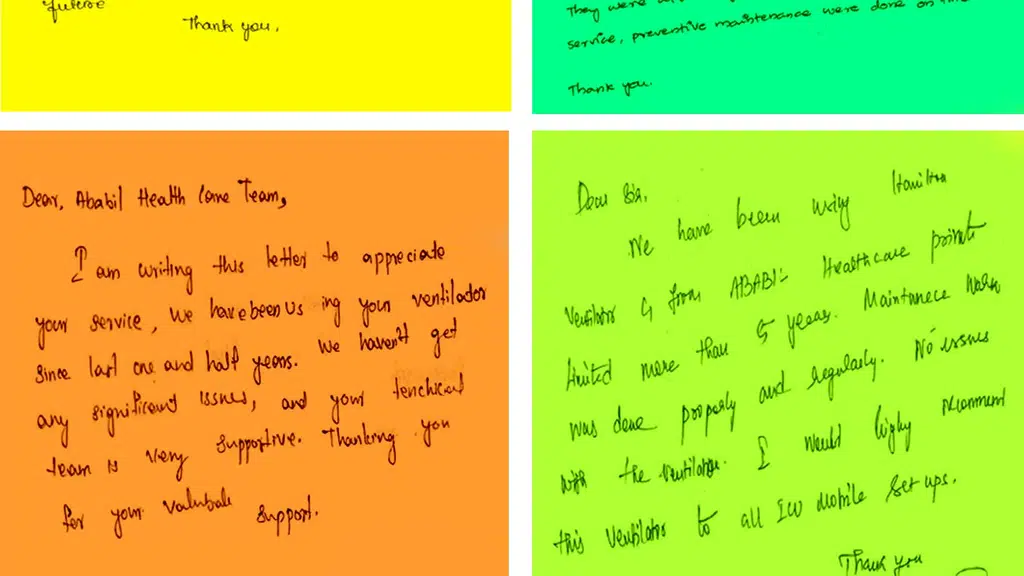 future
Thank you.
They were
service, preventive maintenance were done on
Thank you.
Dear, Ababil Health Care Team,
I am writing this letter to appreciate
your service, We have been us ing your ventilador
since last one and half years. We haven't get
any significant issues, and your tenchical
team is very supportive. Thanking you
for your valubale support.
Dear Sir,
We have been using Hamilton
Ventilator from ABABIL Healthcare private
limited more than 5 years. Maintanece
was done properly and regularly. No issues
with the ventilator. I would highly recomment
this ventilator to all ICU mobile set ups.
Thank you